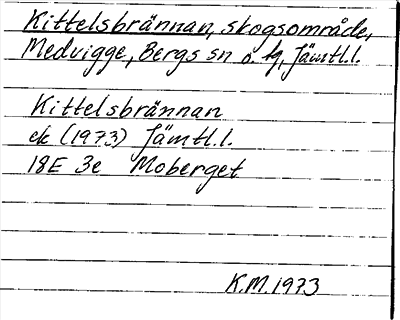 Kittelsbrännan, skogsområde,
Medvigge, Bergs sn o. tg, Jämtl. l.
Kittelsbrännan
ek (1973) Jämtl. l.
18E 3e Moberget
K.M. 1973